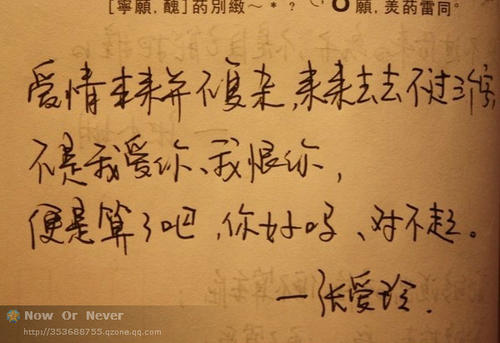 [寧願,醜]药別緻～*?
願,羨药雷同。
爱情本来并不复杂,来来去去不过三个字
不是我爱你、我恨你,
便是算了吧,你好吗、对不起。
—张爱玲.
Now Or Never
http://353688755.qzone.qq.com/